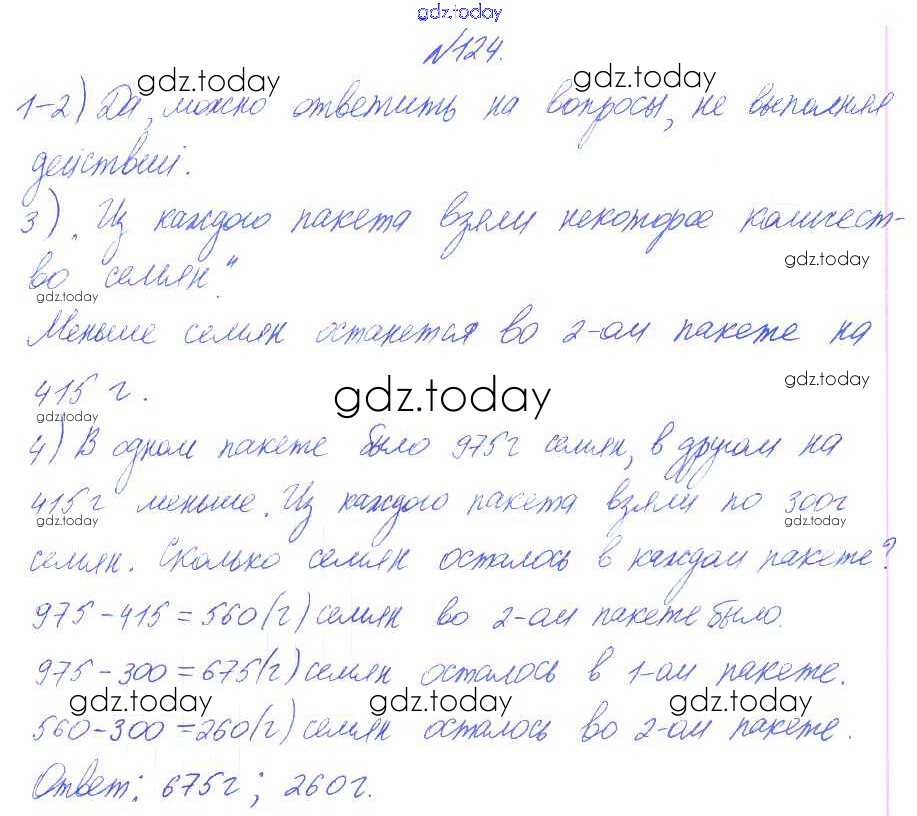 gdz.today
№124.
gdz.today gdz.today
1-2) Да, можно ответить на вопросы, не выполняя
действий.
3) „Из каждого пакета взяли некоторое количест-
gdz.today
во семян".
gdz.today
Меньше семян останется во 2-ом пакете на
gdz.today
415 г.
gdz.today
gdz.today
4) В одном пакете было 975г семян, в другом на
415г меньше. Из каждого пакета взяли по 300г
gdz.today gdz.today gdz.today
семян. Сколько семян осталось в каждом пакете?
975-415=560(г) семян во 2-ом пакете было.
975-300=675(г) семян осталось в 1-ом пакете.
gdz.today gdz.today gdz.today
560-300=260(г) семян осталось во 2-ом пакете.
Ответ: 675г; 260г.